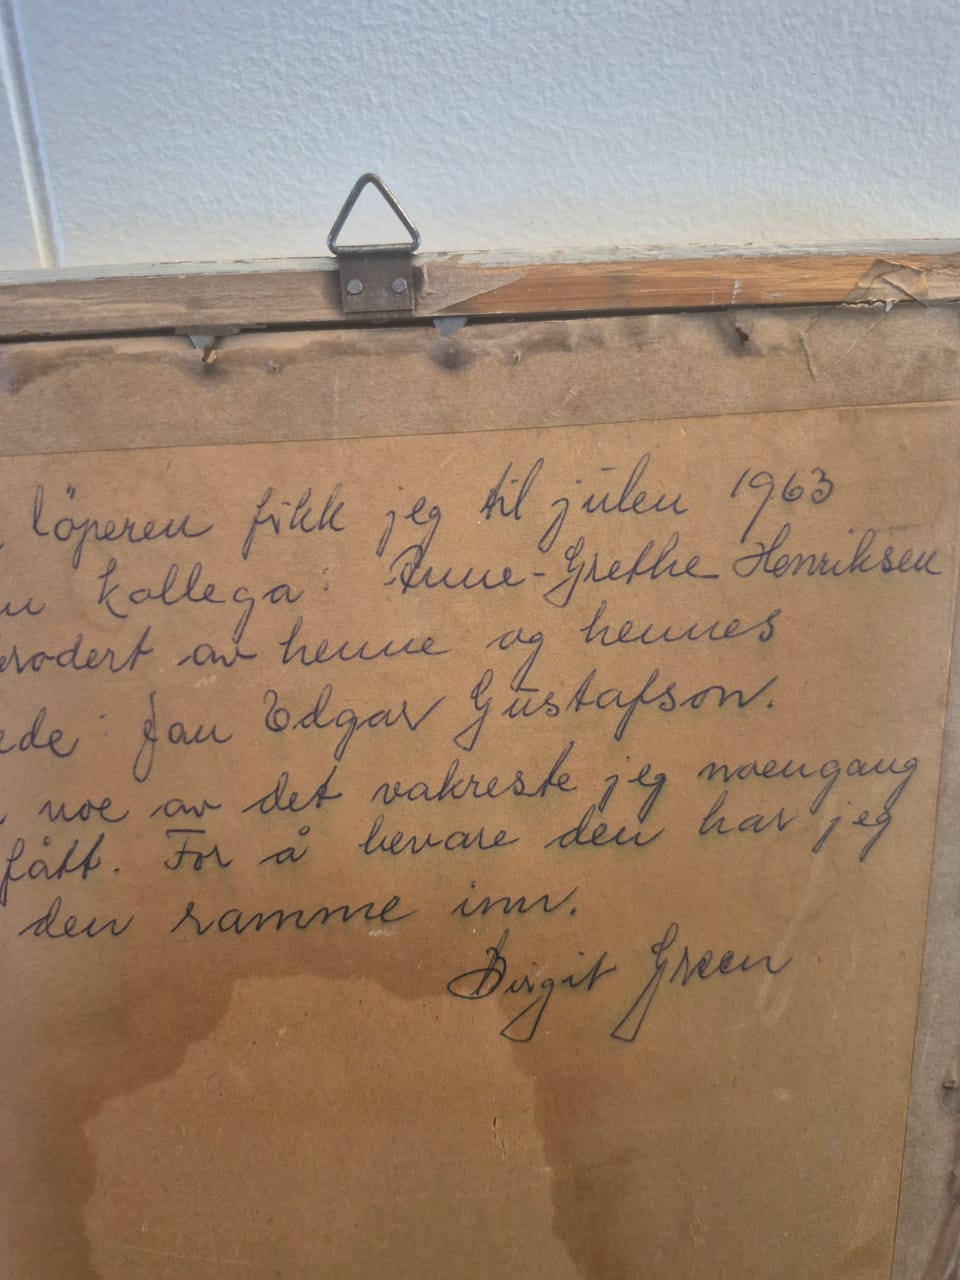 löperen fikk jeg til julen 1963
kollega: Anne-Grethe Henriksen
av henne og hennes
Jan Edgar Gustafson.
noe av det vakreste jeg noengang
fått. For å bevare den har jeg
den ramme inn.
Birgit Green